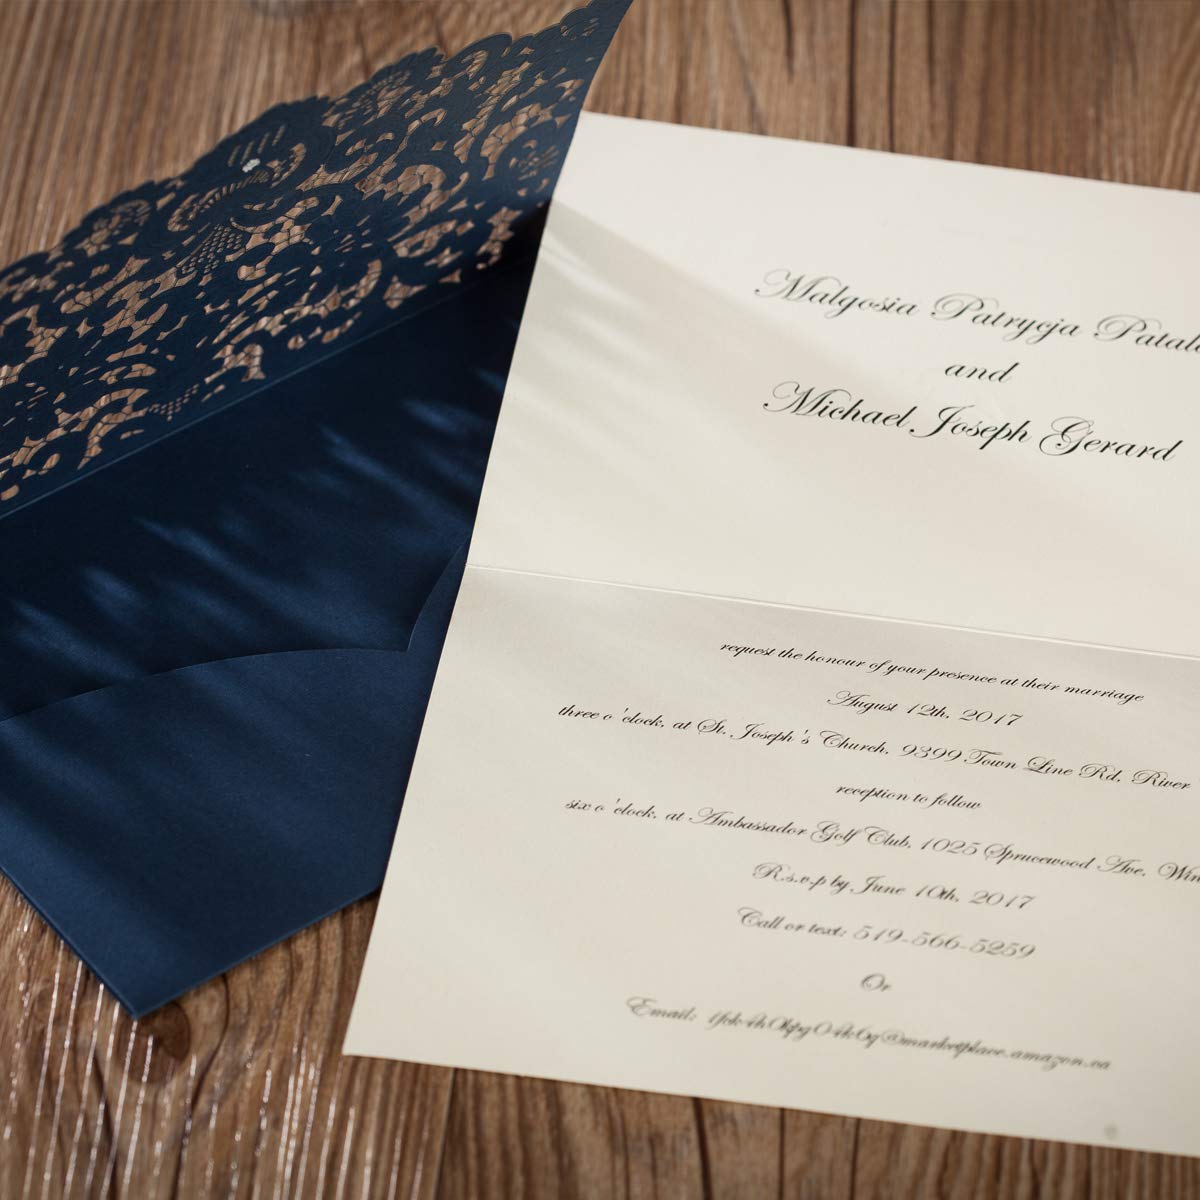 Malgosia Patrycja
and
Michael Joseph Gerard
request the honour of your presence at their marriage
August 12th, 2017
three o 'clock, at St. Joseph 's Church, 9399 Town Line Rd, River
reception to follow
six o 'clock, at Ambassador Golf Club, 1025 Sprucewood Ave, Win
R.s.v.p by June 10th, 2017
Call or text: 519-566-5259
Or
Email: